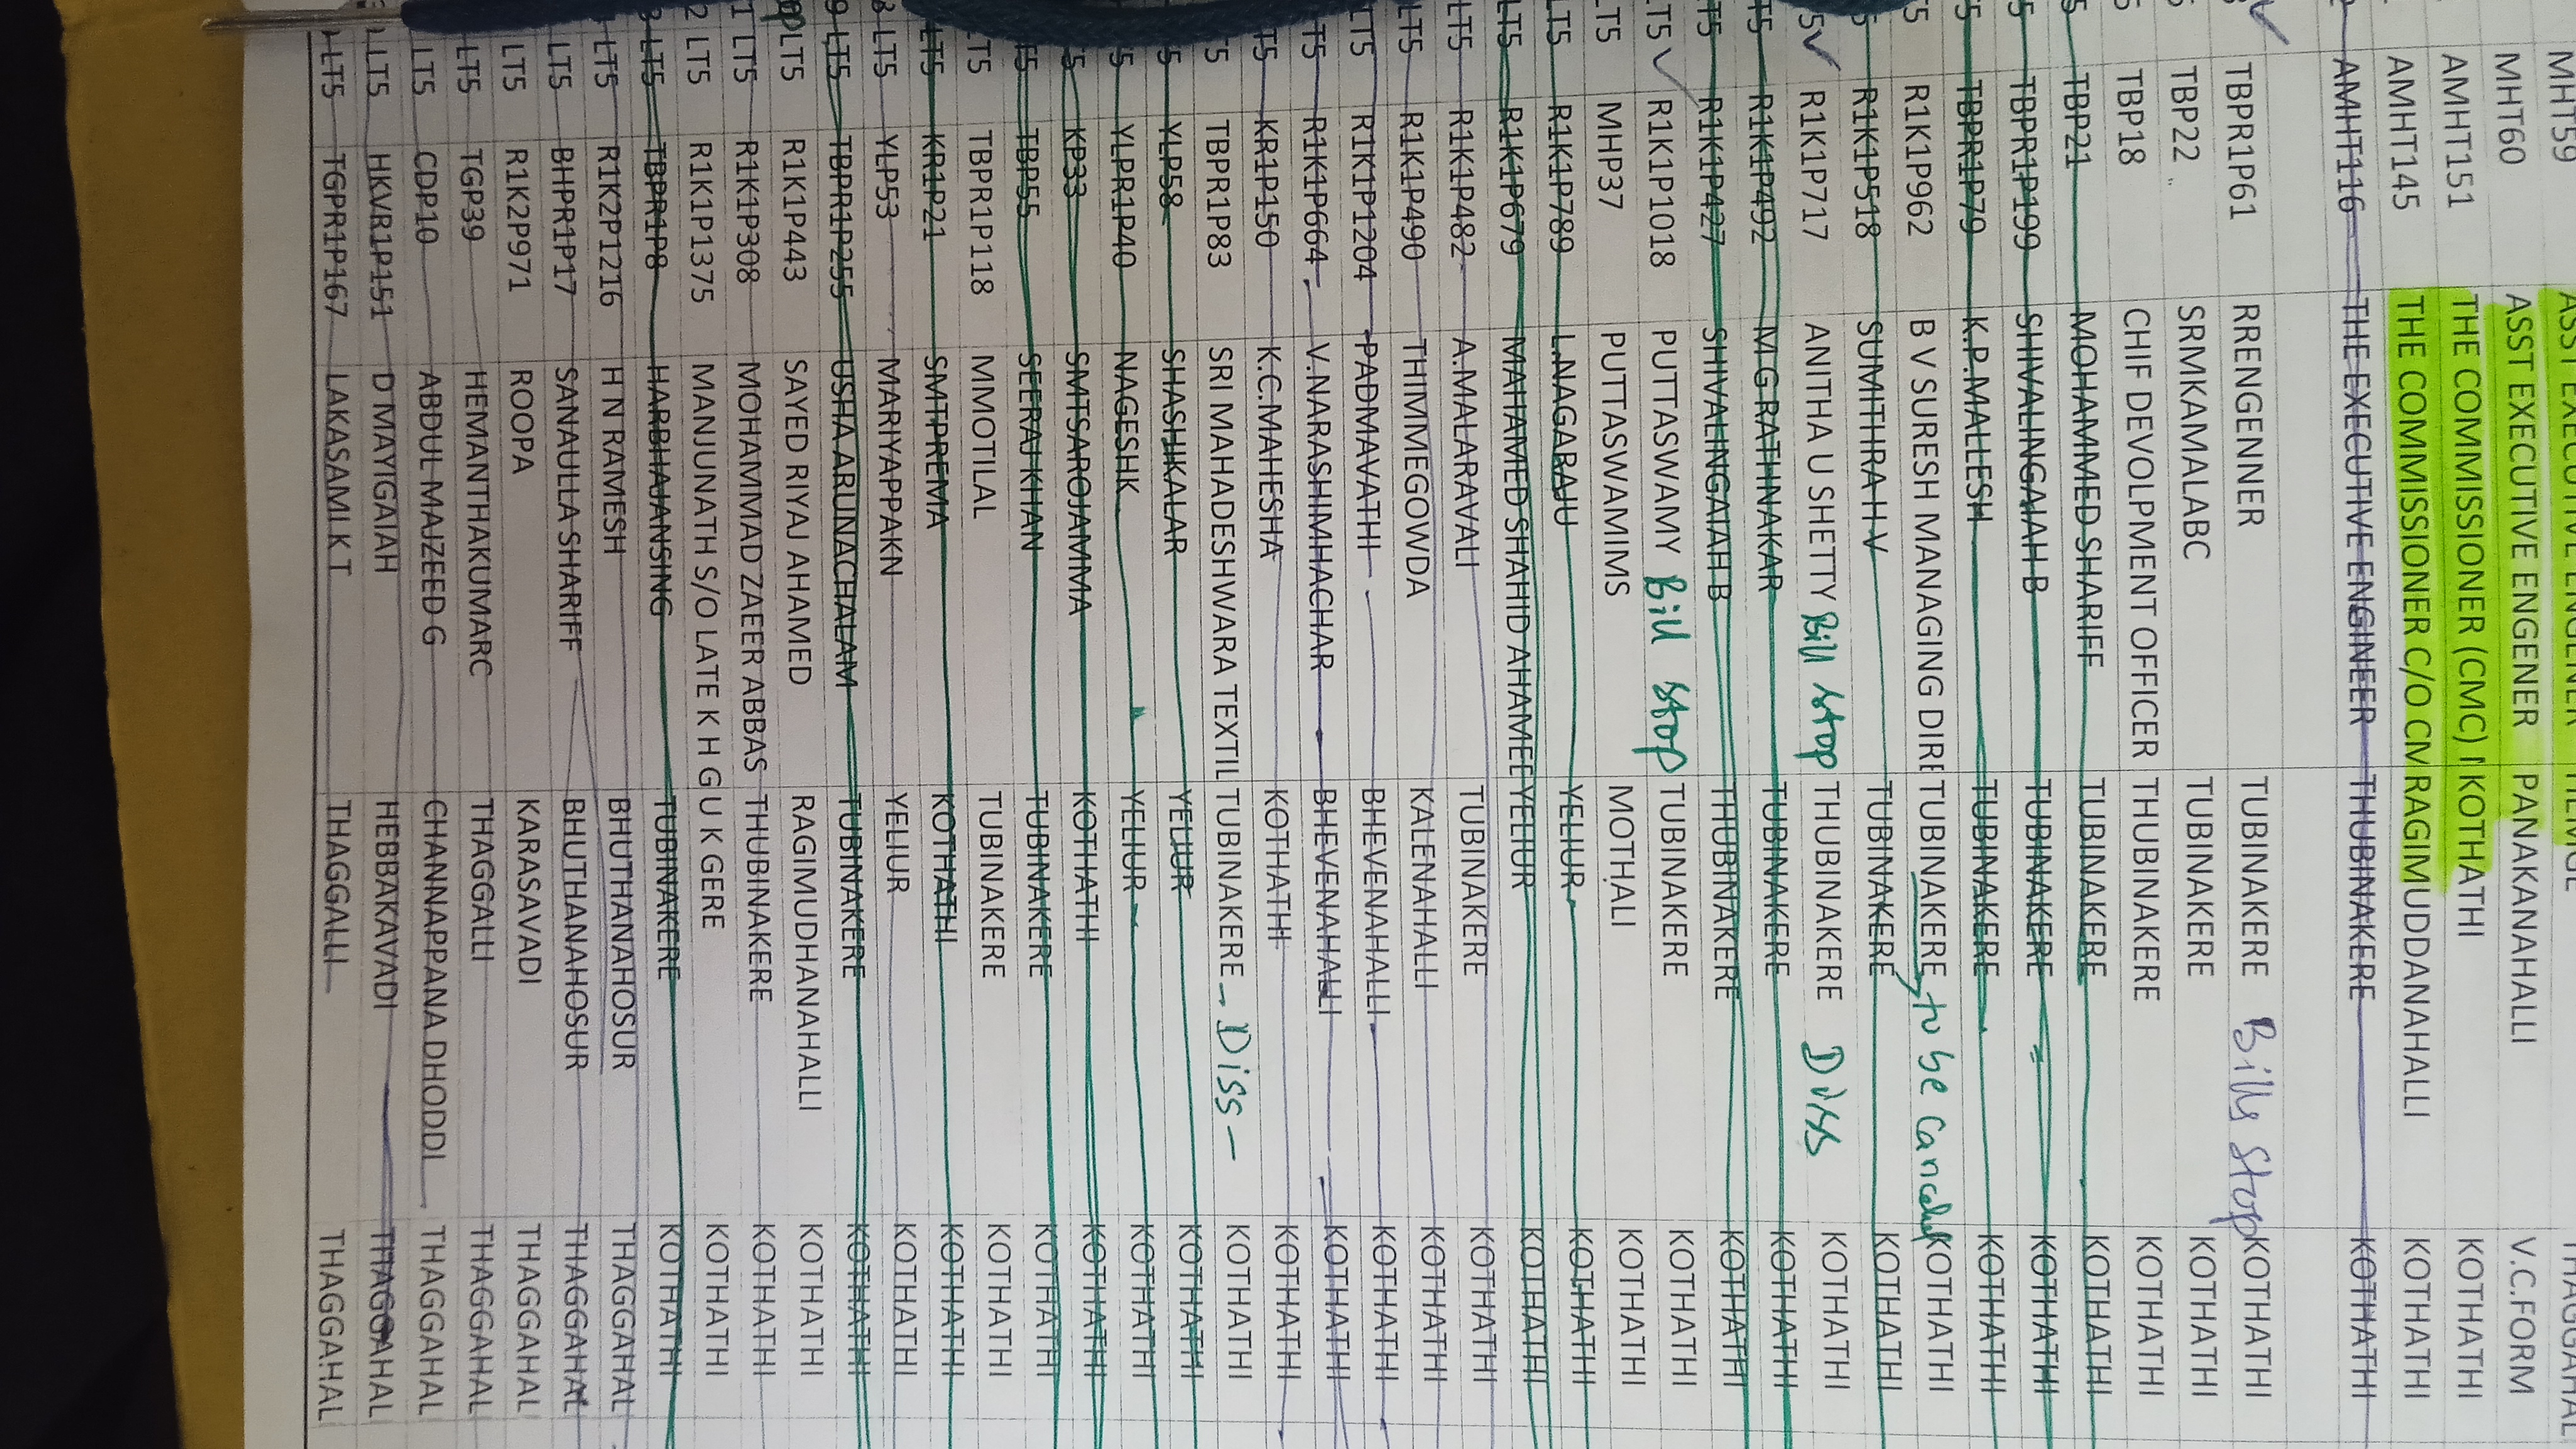 MHT59 ASST EXECUTIVE ENGENER
MHT60 ASST EXECUTIVE ENGENER PANAKANAHALLI V.C.FORM
AMHT151 THE COMMISSIONER (CMC) KOTHATHI KOTHATHI
AMHT145 THE COMMISSIONER C/O CM RAGIMUDDANAHALLI KOTHATHI
AMHT116 THE EXECUTIVE ENGINEER THUBINAKERE KOTHATHI
TBPR1P61 RRENGENNER TUBINAKERE Bills Stop KOTHATHI
TBP22 SRMKAMALABC TUBINAKERE KOTHATHI
TBP18 CHIF DEVOLPMENT OFFICER THUBINAKERE KOTHATHI
TBP21 MOHAMMED SHARIFF TUBINAKERE KOTHATHI
TBPR1P199 SHIVALINGAIAH B TUBINAKERE KOTHATHI
TBPR1P79 K.P.MALLESH TUBINAKERE KOTHATHI
R1K1P962 B V SURESH MANAGING DIRE TUBINAKERE to be Cancel KOTHATHI
R1K1P518 SUMITHRA H V TUBINAKERE KOTHATHI
R1K1P717 ANITHA U SHETTY Bill Stop THUBINAKERE Diss KOTHATHI
R1K1P492 M G RATHNAKAR TUBINAKERE KOTHATHI
R1K1P427 SHIVALINGAIAH B THUBINAKERE KOTHATHI
LT5 R1K1P1018 PUTTASWAMY Bill Stop TUBINAKERE KOTHATHI
LT5 MHP37 PUTTASWAMIMS MOTHALI KOTHATHI
LT5 R1K1P789 L.NAGARAJU YELIUR KOTHATHI
LT5 R1K1P679 MAHAMED SHAHID AHAMEE YELIUR KOTHATHI
LT5 R1K1P482 A.MALARAVALI TUBINAKERE KOTHATHI
LT5 R1K1P490 THIMMEGOWDA KALENAHALLI KOTHATHI
LT5 R1K1P1204 PADMAVATHI BHEVENAHALLI KOTHATHI
R1K1P664 V.NARASHIMHACHAR BHEVENAHALLI KOTHATHI
KR1P150 K.C.MAHESHA KOTHATHI KOTHATHI
TBPR1P83 SRI MAHADESHWARA TEXTIL TUBINAKERE - Diss - KOTHATHI
YLP58 SHASHIKALAR YELIUR KOTHATHI
YLPR1P40 NAGESHK YELIUR KOTHATHI
KP33 SMTSAROJAMMA KOTHATHI KOTHATHI
TBP55 SEERAJ KHAN TUBINAKERE KOTHATHI
LT5 TBPR1P118 MMOTILAL TUBINAKERE KOTHATHI
LT5 KR1P21 SMTPREMA KOTHATHI KOTHATHI
LT5 YLP53 MARIYAPPAKN YELIUR KOTHATHI
LT5 TBPR1P255 USHA ARUNACHALAM TUBINAKERE KOTHATHI
LT5 R1K1P443 SAYED RIYAJ AHAMED RAGIMUDHANAHALLI KOTHATHI
LT5 R1K1P308 MOHAMMAD ZAEER ABBAS THUBINAKERE KOTHATHI
LT5 R1K1P1375 MANJUNATH S/O LATE K H G U K GERE KOTHATHI
LT5 TBPR1P8 HARBHAJANSING TUBINAKERE KOTHATHI
LT5 R1K2P1216 H N RAMESH BHUTHANAHOSUR THAGGAHAL
LT5 BHPR1P17 SANAULLA SHARIFF BHUTHANAHOSUR THAGGAHAL
LT5 R1K2P971 ROOPA KARASAVADI THAGGAHAL
LT5 TGP39 HEMANTHAKUMARC THAGGALLI THAGGAHAL
LT5 CDP10 ABDUL MAJZEED G CHANNAPPANA DHODDI THAGGAHAL
LT5 HKVR1P151 D MAYIGAIAH HEBBAKAVADI THAGGAHAL
LT5 TGPR1P167 LAKASAMI K T THAGGALLI THAGGAHAL